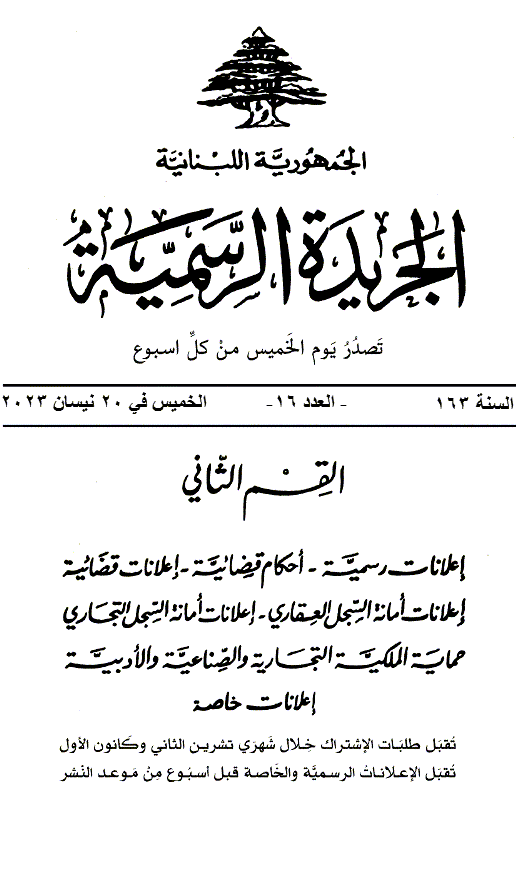 الجُمهُوريَّة اللبْنانيَّة
الجَريدَة الرسَّمِيَّة
تَصدُرُ يَوم الخَميس منْ كلِّ اسبوع
السنة ١٦٣ - العدد ١٦- الخميس في ٢٠ نيسان ٢٠٢٣
القِسْم الثّاني
إعلانات رسميَّة - أحكام قضائيَّة - إعلانات قضائية
إعلانات أمانة السِّجل العقاري - إعلانات أمانة السِّجل التجاري
حماية الملكيَّة التجارية والصِّناعيَّة والأدبيَّة
إعلانات خاصة
تُقبَل طلبَات الإشتراك خِلال شَهرَي تشرين الثاني وكَانون الأول
تُقبَل الإعلاناتُ الرسميَّة والخَاصة قَبل أسبُوع مِنْ مَوعد النَشر